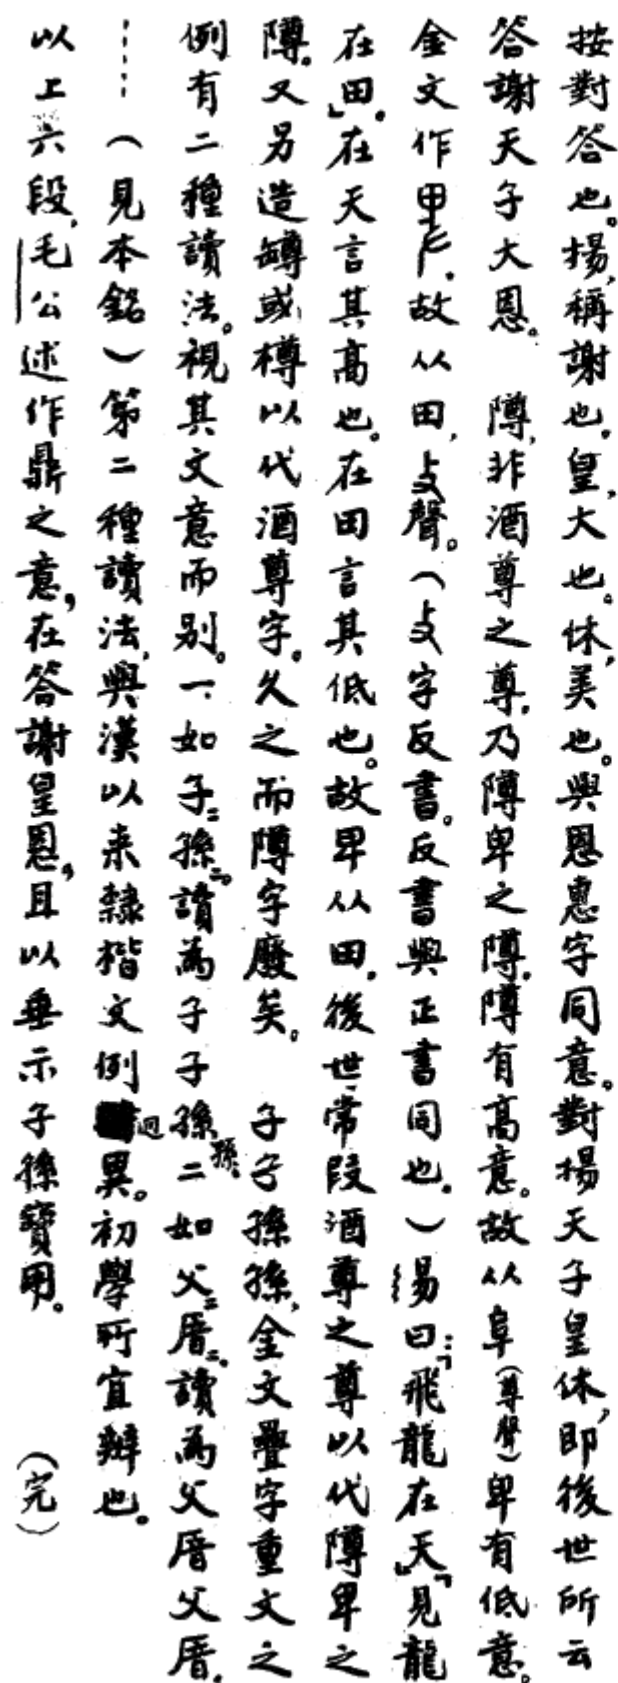 按對答也。揚,稱謝也。皇,大也。休,美也。與恩惠字同意。對揚天子皇休,即後世所云
答謝天子大恩。　隣,非酒尊之尊,乃隣卑之隣。隣有高意。故从阜(尊聲)卑有低意。
金文作。故从田,聲。(字反書。反書與正書同也。)易曰:「飛龍在天」「見龍
在田」。在天言其高也。在田言其低也。故卑从田。後世常段酒尊之尊以代隣卑之
隣。又另造罇或樽以代酒尊字。久之而隣字廢矣。　子子孫孫,金文疊字重文之
例有二種讀法。視其文意而別。一、如子=孫=。讀為子子孫孫。二如父=厝=。讀為父厝父厝。
……(見本銘)第二種讀法,與漢以来隸楷文例迥異。初學所宜辨也。
以上六段,毛公述作鼎之意,在答謝皇恩,且以垂示子孫寶用。　(完)